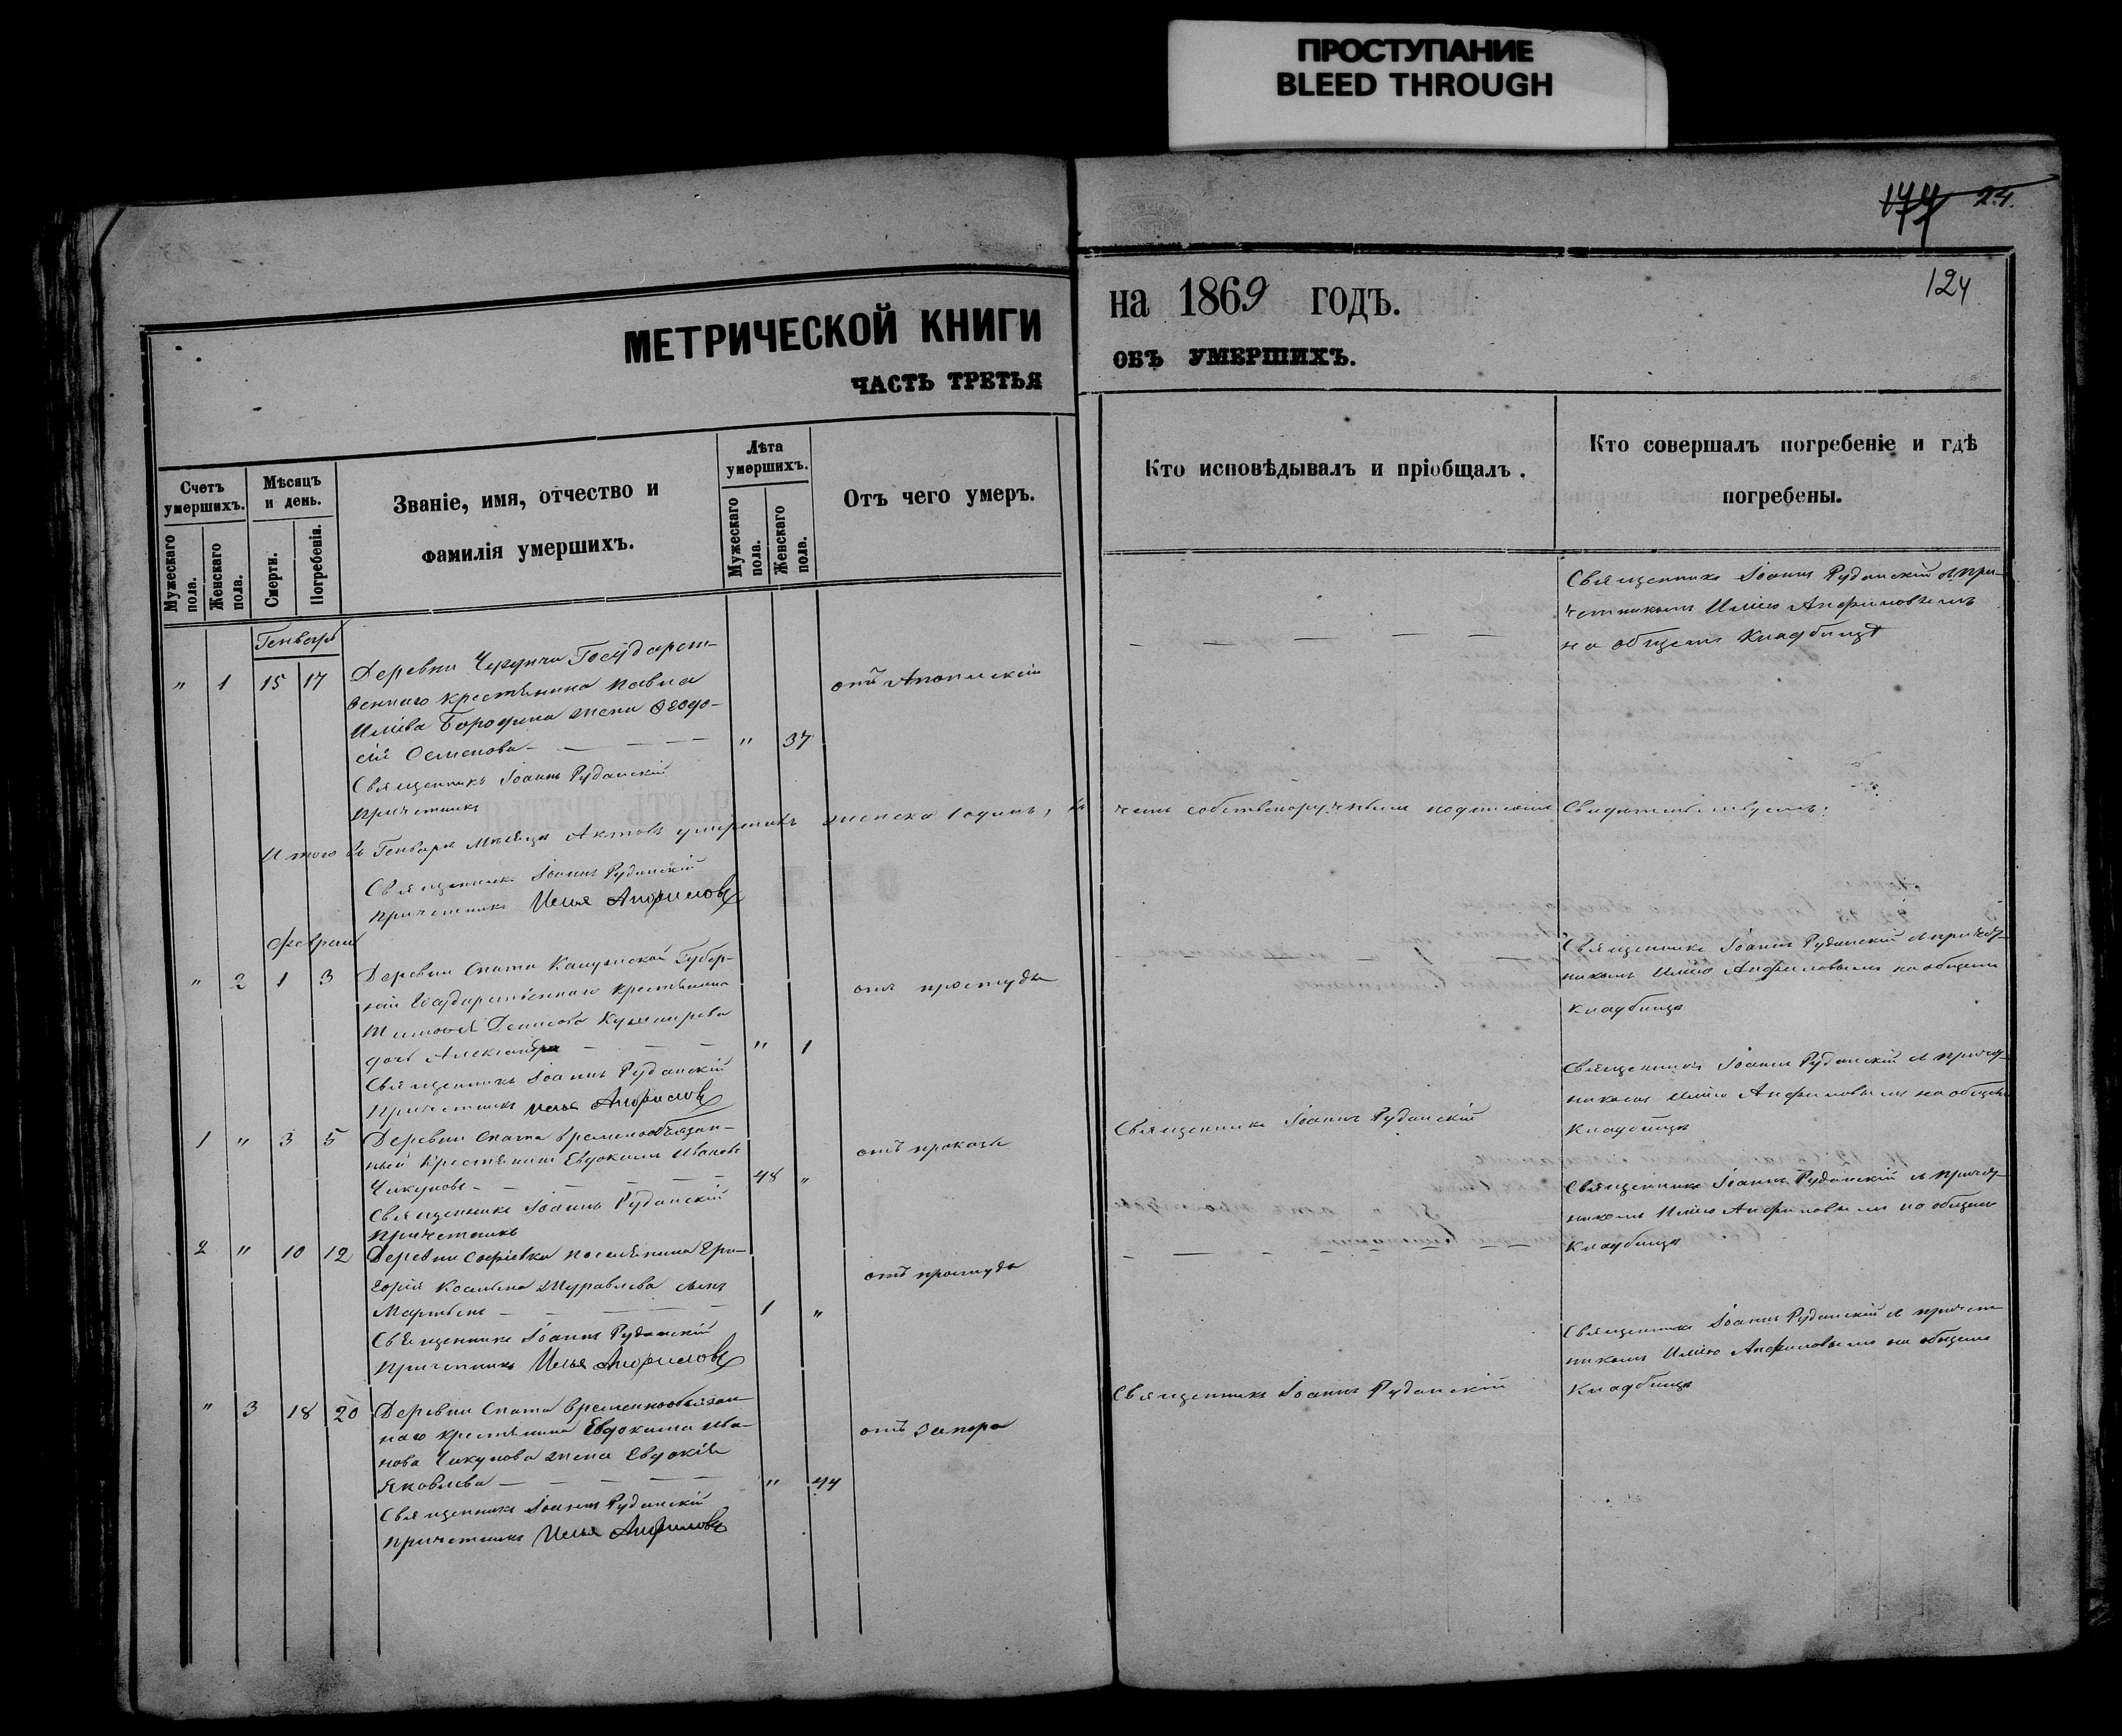 ПРОСТУПАНИЕ
BLEED THROUGH
24.
124
МЕТРИЧЕСКОЙ КНИГИ
ЧАСТЬ ТРЕТЬЯ
на 1869 годъ.
ОБЪ УМЕРШИХЪ.
Счетъ умершихъ.
Мужескаго пола.
Женскаго пола.
Мѣсяцъ и день.
Смерти.
Погребенія.
Званіе, имя, отчество и
фамилія умершихъ.
Лѣта умершихъ.
Мужескаго пола.
Женскаго пола.
Отъ чего умеръ.
Кто исповѣдывалъ и пріобщалъ.
Кто совершалъ погребеніе и гдѣ
погребены.
Генварь
" 1 15 17 Деревни Государст-
веннаго крестьянина Павла
Бородина жена Ѳеодо-
сія Семенова " 37
Священникъ Іоаннъ Руданскій
Причетникъ
Священникъ Іоаннъ Руданскій и при-
четникомъ Иліею Анфиловымъ
на общемъ Кладбищѣ
Итого въ Генварѣ Мѣсяцѣ Актовъ умершихъ женска 1 одинъ, въ чемъ собственоручнымъ подписомъ Свидѣтельствуемъ:
Священникъ Іоаннъ Руданскій
Причетникъ Илья Анфиловъ
Февраль
" 2 1 3 Деревни Спата Калужской Губер-
ніи Государственнаго крестьянина
Денисова
дочь Александра " 1
отъ простуды
Священникъ Іоаннъ Руданскій
Причетникъ Илья Анфиловъ
Священникъ Іоаннъ Руданскій и причет-
никомъ Иліею Анфиловымъ на общемъ
Кладбищѣ
1 " 3 5 Деревни Спата временнообязан-
ный крестьянинъ Евдокимъ Ивановъ
Чикуновъ 48 "
отъ проказы
Священникъ Іоаннъ Руданскій
Священникъ Іоаннъ Руданскій
Причетникъ
Священникъ Іоаннъ Руданскій и причет-
никомъ Иліею Анфиловымъ на общемъ
Кладбищѣ
2 " 10 12 Деревни Софіевка поселянина
Журавлева сынъ
Мартынъ 1 "
отъ простуды
Священникъ Іоаннъ Руданскій
Причетникъ Илья Анфиловъ
Священникъ Іоаннъ Руданскій и причет-
никомъ Иліею Анфиловымъ на общемъ
Кладбищѣ
" 3 18 20 Деревни Спата временнообязан-
наго крестьянина Евдокима Ива-
нова Чикунова жена Евдокія
Яковлева " 44
отъ запора
Священникъ Іоаннъ Руданскій
Священникъ Іоаннъ Руданскій
Причетникъ Илья Анфиловъ
Священникъ Іоаннъ Руданскій и причет-
никомъ Иліею Анфиловымъ на общемъ
Кладбищѣ